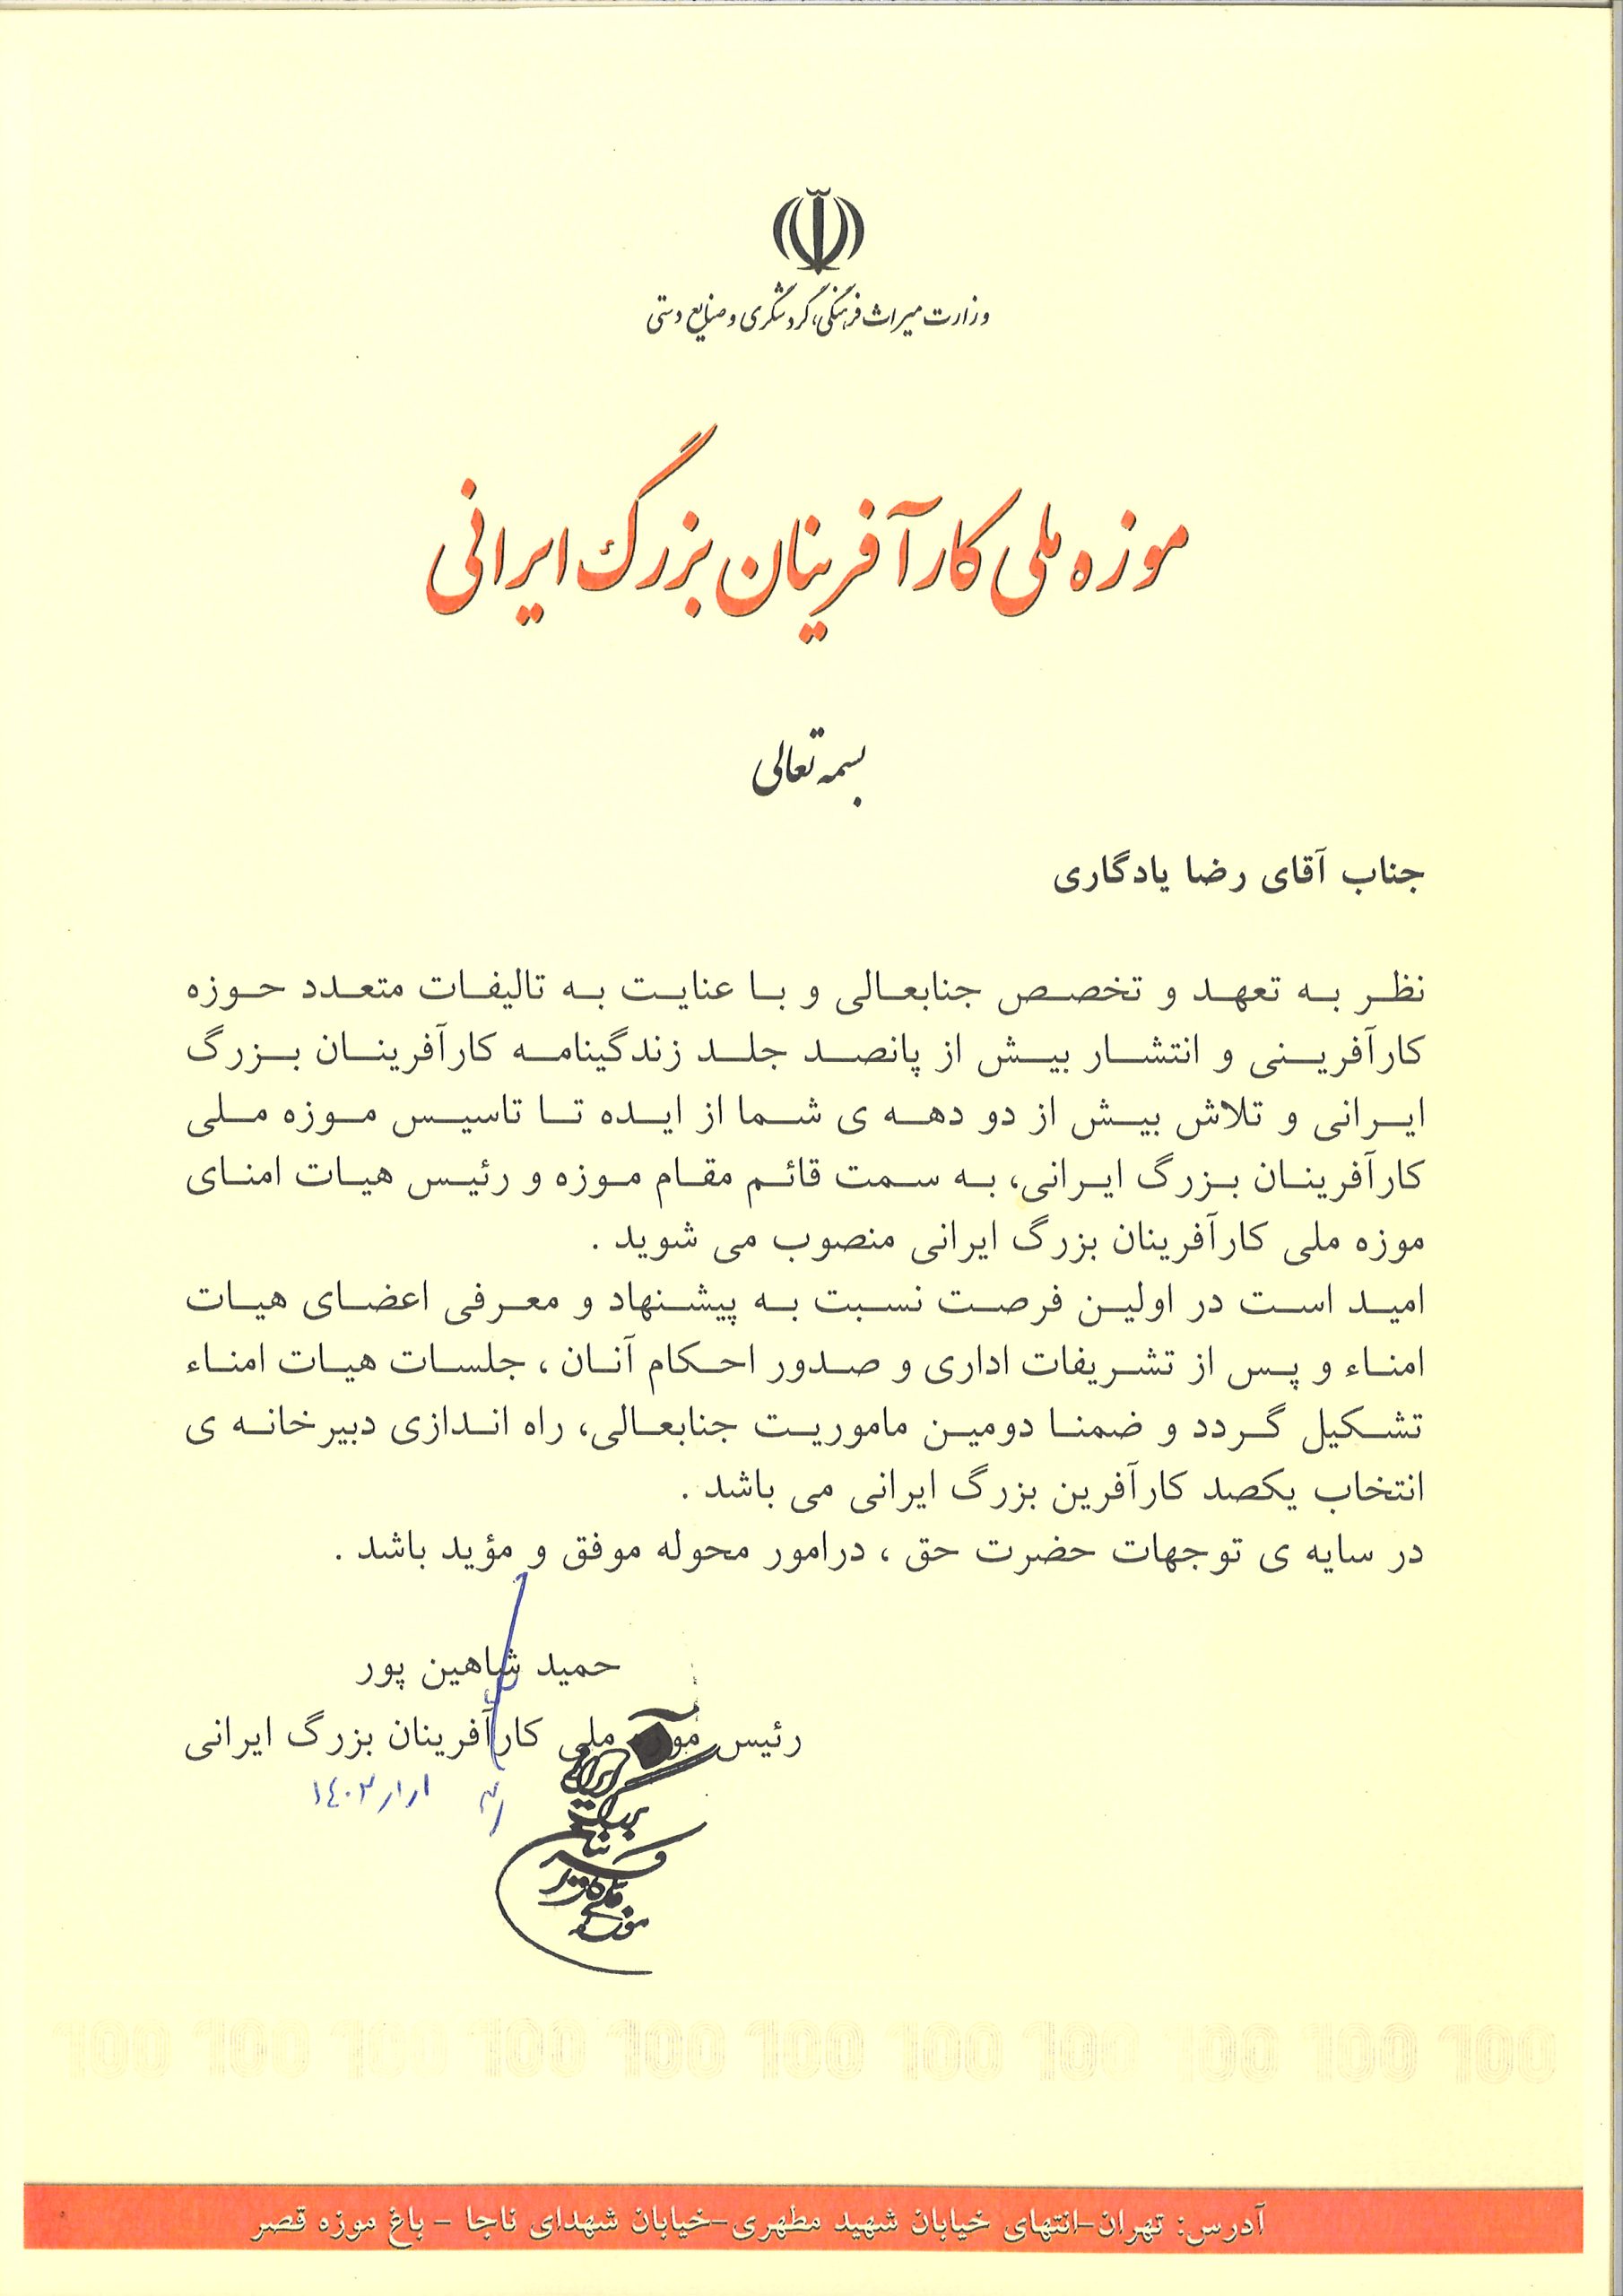 وزارت میراث فرهنگی، گردشگری و صنایع دستی
موزه ملی کارآفرینان بزرگ ایرانی
بسمه تعالی
جناب آقای رضا یادگاری
نظر به تعهد و تخصص جنابعالی و با عنایت به تالیفات متعدد حوزه
کارآفرینی و انتشار بیش از پانصد جلد زندگینامه کارآفرینان بزرگ
ایرانی و تلاش بیش از دو دهه ی شما از ایده تا تاسیس موزه ملی
کارآفرینان بزرگ ایرانی، به سمت قائم مقام موزه و رئیس هیات امنای
موزه ملی کارآفرینان بزرگ ایرانی منصوب می شوید .
امید است در اولین فرصت نسبت به پیشنهاد و معرفی اعضای هیات
امناء و پس از تشریفات اداری و صدور احکام آنان ، جلسات هیات امناء
تشکیل گردد و ضمنا دومین ماموریت جنابعالی، راه اندازی دبیرخانه ی
انتخاب یکصد کارآفرین بزرگ ایرانی می باشد .
در سایه ی توجهات حضرت حق ، درامور محوله موفق و مؤید باشد .
حمید شاهین پور
رئیس موزه ملی کارآفرینان بزرگ ایرانی
موزه ملی کارآفرینان بزرگ ایرانی
100 100 100 100 100 100 100 100 100 100 100
آدرس: تهران-انتهای خیابان شهید مطهری-خیابان شهدای ناجا - باغ موزه قصر